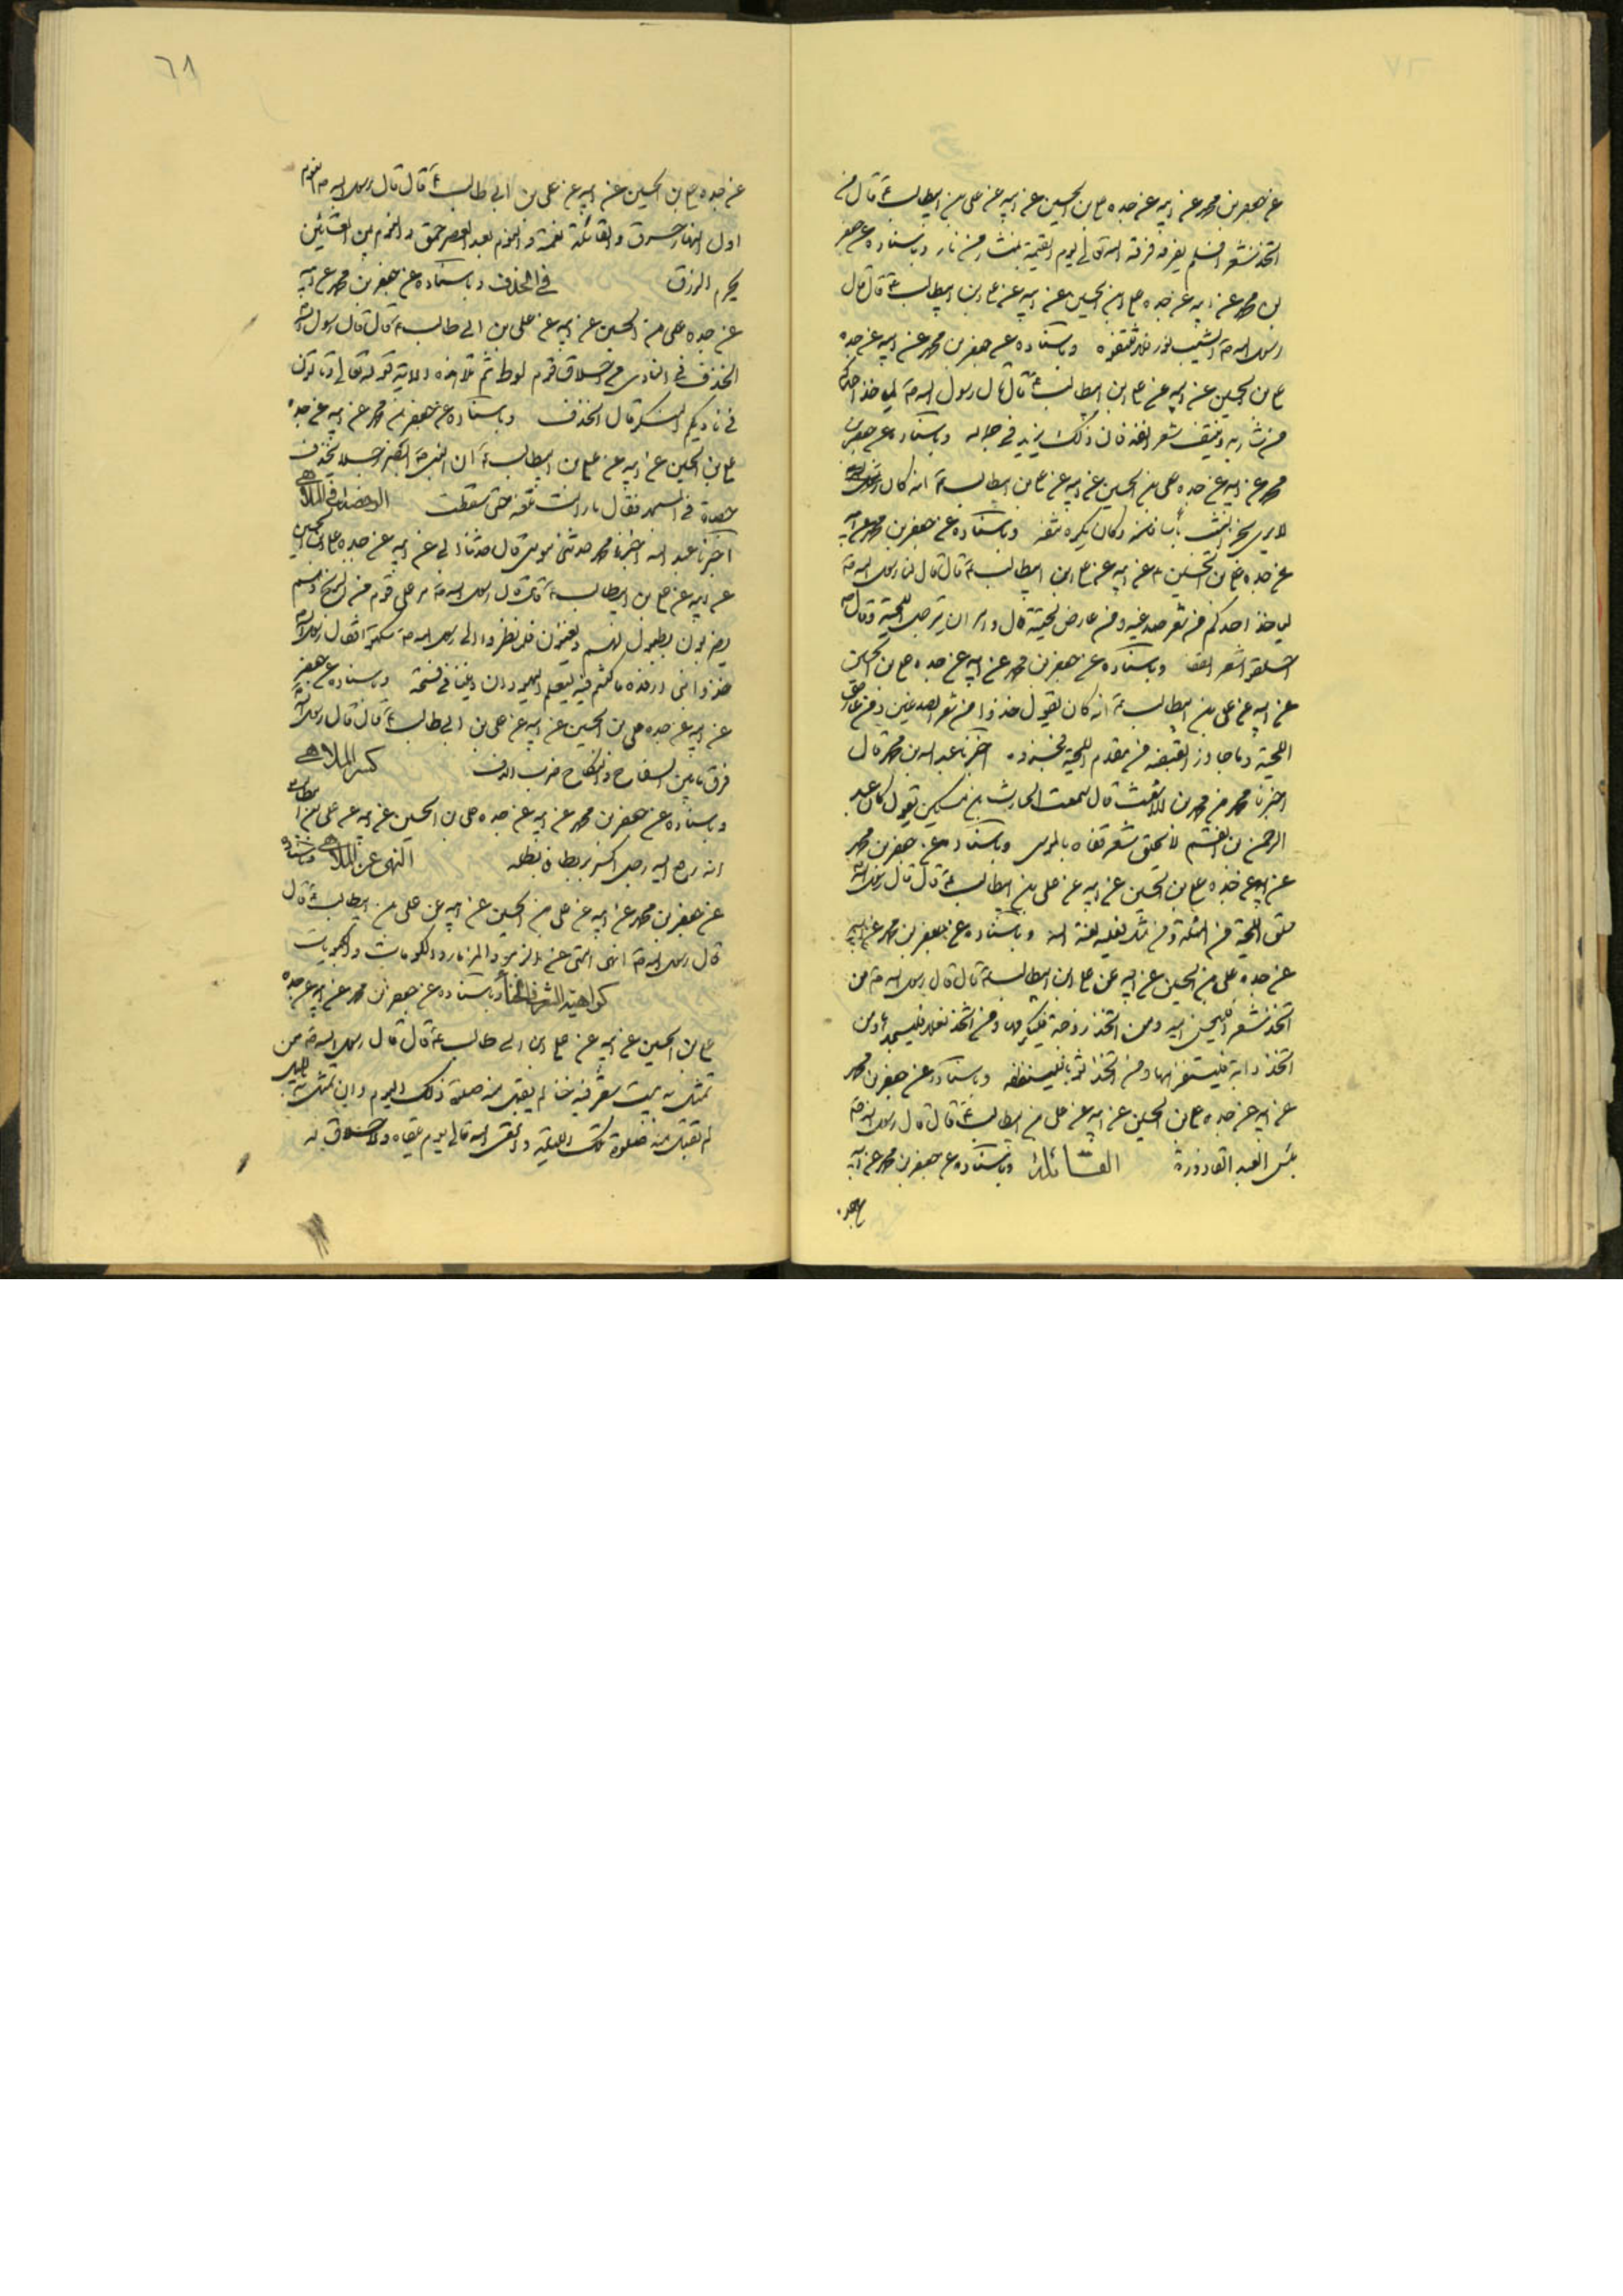 عن جعفر بن محمد عن ابيه عن جده علي بن الحسين عن ابيه عن علي بن ابيطالب ع قال من
اتخذ شعرا فلم يفرقه فرقه الله تعالى يوم القيمة بمنشار من نار وباسناده عن جعفر
بن محمد عن ابيه عن جده علي بن الحسين عن ابيه عن علي بن ابيطالب ع قال قال
رسول الله ص الشيب نور فلا تنتفوه وباسناده عن جعفر بن محمد عن ابيه عن جده
علي بن الحسين عن ابيه عن علي بن ابيطالب ع قال قال رسول الله ص لياخذ احدكم
من شاربه وينتف شعر انفه فان ذلك يزيد في جماله وباسناده عن جعفر بن
محمد عن ابيه عن جده علي بن الحسين عن ابيه عن علي بن ابيطالب ع انه كان
لا يرى بجز الشيب باسا وكان يكره نتفه وباسناده عن جعفر بن محمد عن ابيه
عن جده علي بن الحسين عن ابيه عن علي بن ابيطالب ع قال قال لنا رسول الله ص
لياخذ احدكم من شعر صدغيه ومن عارض لحيته قال وامر ان يرجل اللحية وقال ص
احلقوا شعر القفا وباسناده عن جعفر بن محمد عن ابيه عن جده علي بن الحسين
عن ابيه عن علي بن ابيطالب ع انه كان يقول خذوا من شعر الصدغين ومن عارض
اللحية وما جاوز القبضة من مقدم اللحية فجزوه اخبرنا عبد الله بن محمد قال
اخبرنا محمد بن محمد بن الاشعث قال سمعت الحارث بن مسكين يقول كان عبد
الرحمن بن القسم لا يحلق شعر قفاه بالموسى وباسناده عن جعفر بن محمد
عن ابيه عن جده علي بن الحسين عن ابيه عن علي بن ابيطالب ع قال قال رسول الله
حلق اللحية من المثلة ومن مثل فعليه لعنة الله وباسناده عن جعفر بن محمد عن ابيه
عن جده علي بن الحسين عن ابيه عن علي بن ابيطالب ع قال قال رسول الله ص من
اتخذ شعرا فليحسن اليه ومن اتخذ زوجة فليكرمها ومن اتخذ نعلا فليستجدها ومن
اتخذ دابة فليستفرهها ومن اتخذ ثوبا فلينظفه وباسناده عن جعفر بن محمد
عن ابيه عن جده علي بن الحسين عن ابيه عن علي بن ابيطالب ع قال قال رسول الله ص
بئس العبد القاذورة القائلة وباسناده عن جعفر بن محمد عن ابيه
عن جده
٦٨
عن جده علي بن الحسين عن ابيه عن علي بن ابي طالب ع قال قال رسول الله ص النوم
اول النهار خرق والقائلة نعمة والنوم بعد العصر حمق والنوم بين العشائين
يحرم الرزق في الخذف وباسناده عن جعفر بن محمد عن ابيه
عن جده علي بن الحسين عن ابيه عن علي بن ابي طالب ع قال قال رسول الله
الخذف في النادي من اخلاق قوم لوط ثم تلا هذه الاية قوله تعالى وتاتون
في ناديكم المنكر قال الخذف وباسناده عن جعفر بن محمد عن ابيه عن جده
علي بن الحسين عن ابيه عن علي بن ابيطالب ع ان النبي ص ابصر رجلا يخذف
حصاة في المسجد فقال ما زالت تلعنه حتى سقطت الرخصة في الملاهي
اخبرنا عبد الله اخبرنا محمد حدثني موسى قال حدثنا ابي عن ابيه عن جده علي بن الحسين
عن ابيه عن علي بن ابيطالب ع قال ان رسول الله ص مر على قوم من الزنج وهم
يضربون بطبول لهم ويغنون فلما نظروا الى رسول الله ص سكتوا فقال رسول الله
خذوا بني ارفدة ما كنتم فيه ليعلم اليهود ان ديننا في فسحة وباسناده عن جعفر
عن ابيه عن جده علي بن الحسين عن ابيه عن علي بن ابي طالب ع قال قال رسول الله
فرق ما بين السفاح والنكاح ضرب الدف كسر الملاهي
وباسناده عن جعفر بن محمد عن ابيه عن جده علي بن الحسين عن ابيه عن علي بن ابيطالب
انه رفع اليه رجل كسر بربطا فابطله النهي عن الملاهي وباسناده
عن جعفر بن محمد عن ابيه عن علي بن الحسين عن ابيه عن علي بن ابيطالب ع قال
قال رسول الله ص انهى امتي عن الزفن والمزمار والكوبات والكبرات
كراهية الشعر فالخنا وباسناده عن جعفر بن محمد عن ابيه عن جده
علي بن الحسين عن ابيه عن علي بن ابي طالب ع قال قال رسول الله ص من
تمثل ببيت شعر فيه خنا لم يقبل منه صلوة ذلك اليوم وان تمثل بالليل
لم تقبل منه صلوة تلك الليلة ولقي الله تعالى يوم يلقاه ولا خلاق له